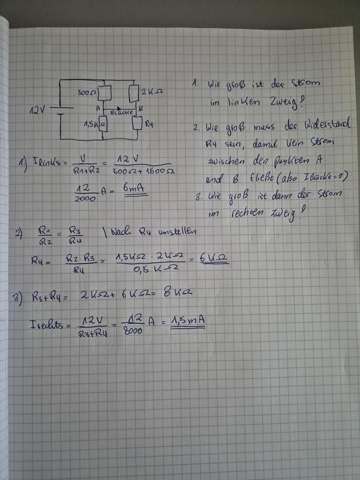 500Ω
2KΩ
12V
A
B
IBrücke
1,5KΩ
R4
1. Wie groß ist der Strom
im linken Zweig?
2. Wie groß muss der Widerstand
R4 sein, damit kein Strom
zwischen den punkten A
und B fließt (also IBrück=0)
3. Wie groß ist dann der Strom
im rechten Zweig?
1) Ilinks = V/R1+R2 = 12V/500Ω+1500Ω
12/2000 A = 6mA
2) R1/R2 = R3/R4 | Nach R4 umstellen
R4 = R2·R3/R4 = 1,5KΩ · 2KΩ/0,5KΩ = 6KΩ
3) R3+R4 = 2KΩ + 6KΩ = 8KΩ
Irechts = 12V/R3+R4 = 12/8000 A = 1,5mA